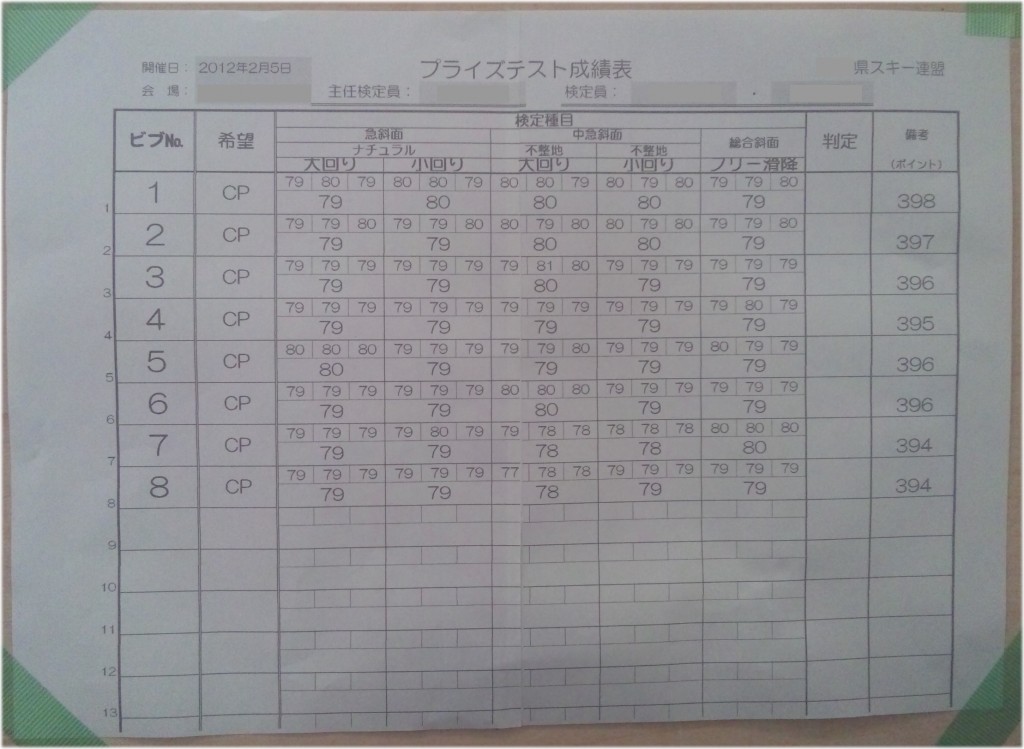 開催日： 2012年2月5日 プライズテスト成績表 県スキー連盟
会　場： 主任検定員： 検定員： ・
ビブNo. 希望 検定種目 判定 備考
急斜面 中急斜面 総合斜面
ナチュラル 不整地 不整地 (ポイント)
大回り 小回り 大回り 小回り フリー滑降
79 80 79 80 80 79 80 80 79 80 79 80 79 79 80
1 1 CP 79 80 80 80 79 398
79 79 80 79 79 80 80 79 80 80 79 80 79 79 80
2 2 CP 79 79 80 80 79 397
79 79 79 79 79 79 79 81 80 79 79 79 79 79 79
3 3 CP 79 79 80 79 79 396
79 79 79 79 79 79 79 79 79 79 79 79 79 80 79
4 4 CP 79 79 79 79 79 395
80 80 80 79 79 79 79 79 80 79 79 79 80 79 79
5 5 CP 80 79 79 79 79 396
79 79 79 79 79 79 80 80 80 79 79 79 79 79 79
6 6 CP 79 79 80 79 79 396
79 79 79 79 80 79 79 78 78 78 78 78 80 80 80
7 7 CP 79 79 78 78 80 394
79 79 79 79 79 79 77 78 78 79 79 79 79 79 79
8 8 CP 79 79 78 79 79 394
9
10
11
12
13